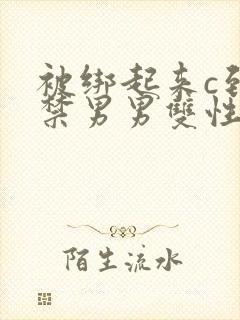 被绑起来c到
禁男男雙性
陌生流水